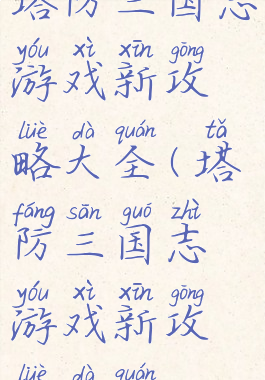 塔防三国志
yóu xì xīn gōng
游戏新攻
lüè dà quán tǎ
略大全(塔
fáng sān guó zhì
防三国志
yóu xì xīn gōng
游戏新攻
lüè dà quán